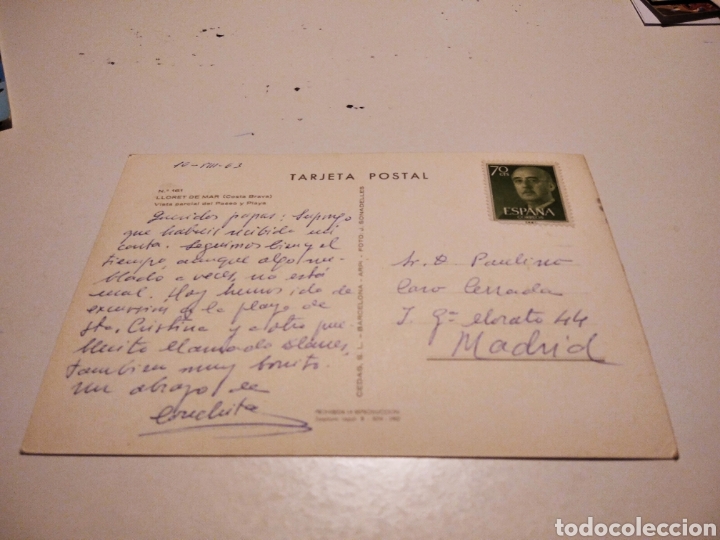 10-VIII-63
TARJETA POSTAL
N.º 161
LLORET DE MAR (Costa Brava)
Vista parcial del Paseo y Playa
Queridos papas: Supongo
que habeis recibido mi
carta. Seguimos bien y el
tiempo aunque algo nu-
blado a veces, no está
mal. Hoy hemos ido de
excursion a la playa de
Sta. Cristina y a otro pue-
blecito llamado Blanes,
tambien muy bonito.
Un abrazo de
Conchita
CEDAG, S. L. - BARCELONA - FOTO J. SONADELLES
PROHIBIDA LA REPRODUCCION
70
CTS
ESPAÑA
CORREOS
Sr. D. Paulino
Caro Cerrada
44
Madrid
todocoleccion.net